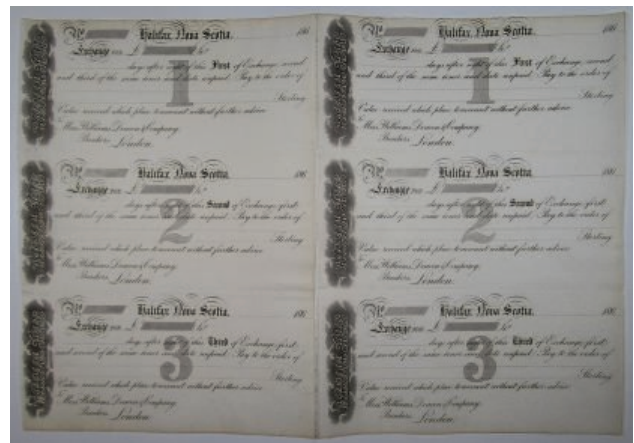 No Halifax, Nova Scotia. 186
Exchange £
days after sight of this First of Exchange second
and third of the same tenor and date unpaid Pay to the order of
1
Sterling
Value received which place to account without further advice
To
Mess. Williams, Deacon & Company
Bankers
London.
No Halifax, Nova Scotia. 186
Exchange £
days after sight of this Second of Exchange first
and third of the same tenor and date unpaid Pay to the order of
2
Sterling
Value received which place to account without further advice
To
Mess. Williams, Deacon & Company
Bankers
London.
No Halifax, Nova Scotia. 186
Exchange £
days after sight of this Third of Exchange first
and second of the same tenor and date unpaid Pay to the order of
3
Sterling
Value received which place to account without further advice
To
Mess. Williams, Deacon & Company
Bankers
London.
No Halifax, Nova Scotia. 186
Exchange £
days after sight of this First of Exchange second
and third of the same tenor and date unpaid Pay to the order of
1
Sterling
Value received which place to account without further advice
To
Mess. Williams, Deacon & Company
Bankers
London.
No Halifax, Nova Scotia. 186
Exchange £
days after sight of this Second of Exchange first
and third of the same tenor and date unpaid Pay to the order of
2
Sterling
Value received which place to account without further advice
To
Mess. Williams, Deacon & Company
Bankers
London.
No Halifax, Nova Scotia. 186
Exchange £
days after sight of this Third of Exchange first
and second of the same tenor and date unpaid Pay to the order of
3
Sterling
Value received which place to account without further advice
To
Mess. Williams, Deacon & Company
Bankers
London.